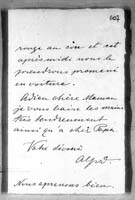 rouge au sou et cet
après midi nous le
prendrons promené
en voiture.
Adieu chère Maman
je vous baise les mains
très tendrement
ainsi qu'à cher Papa.
Votre dévoué
Alfred.
Nous apprenons bien.